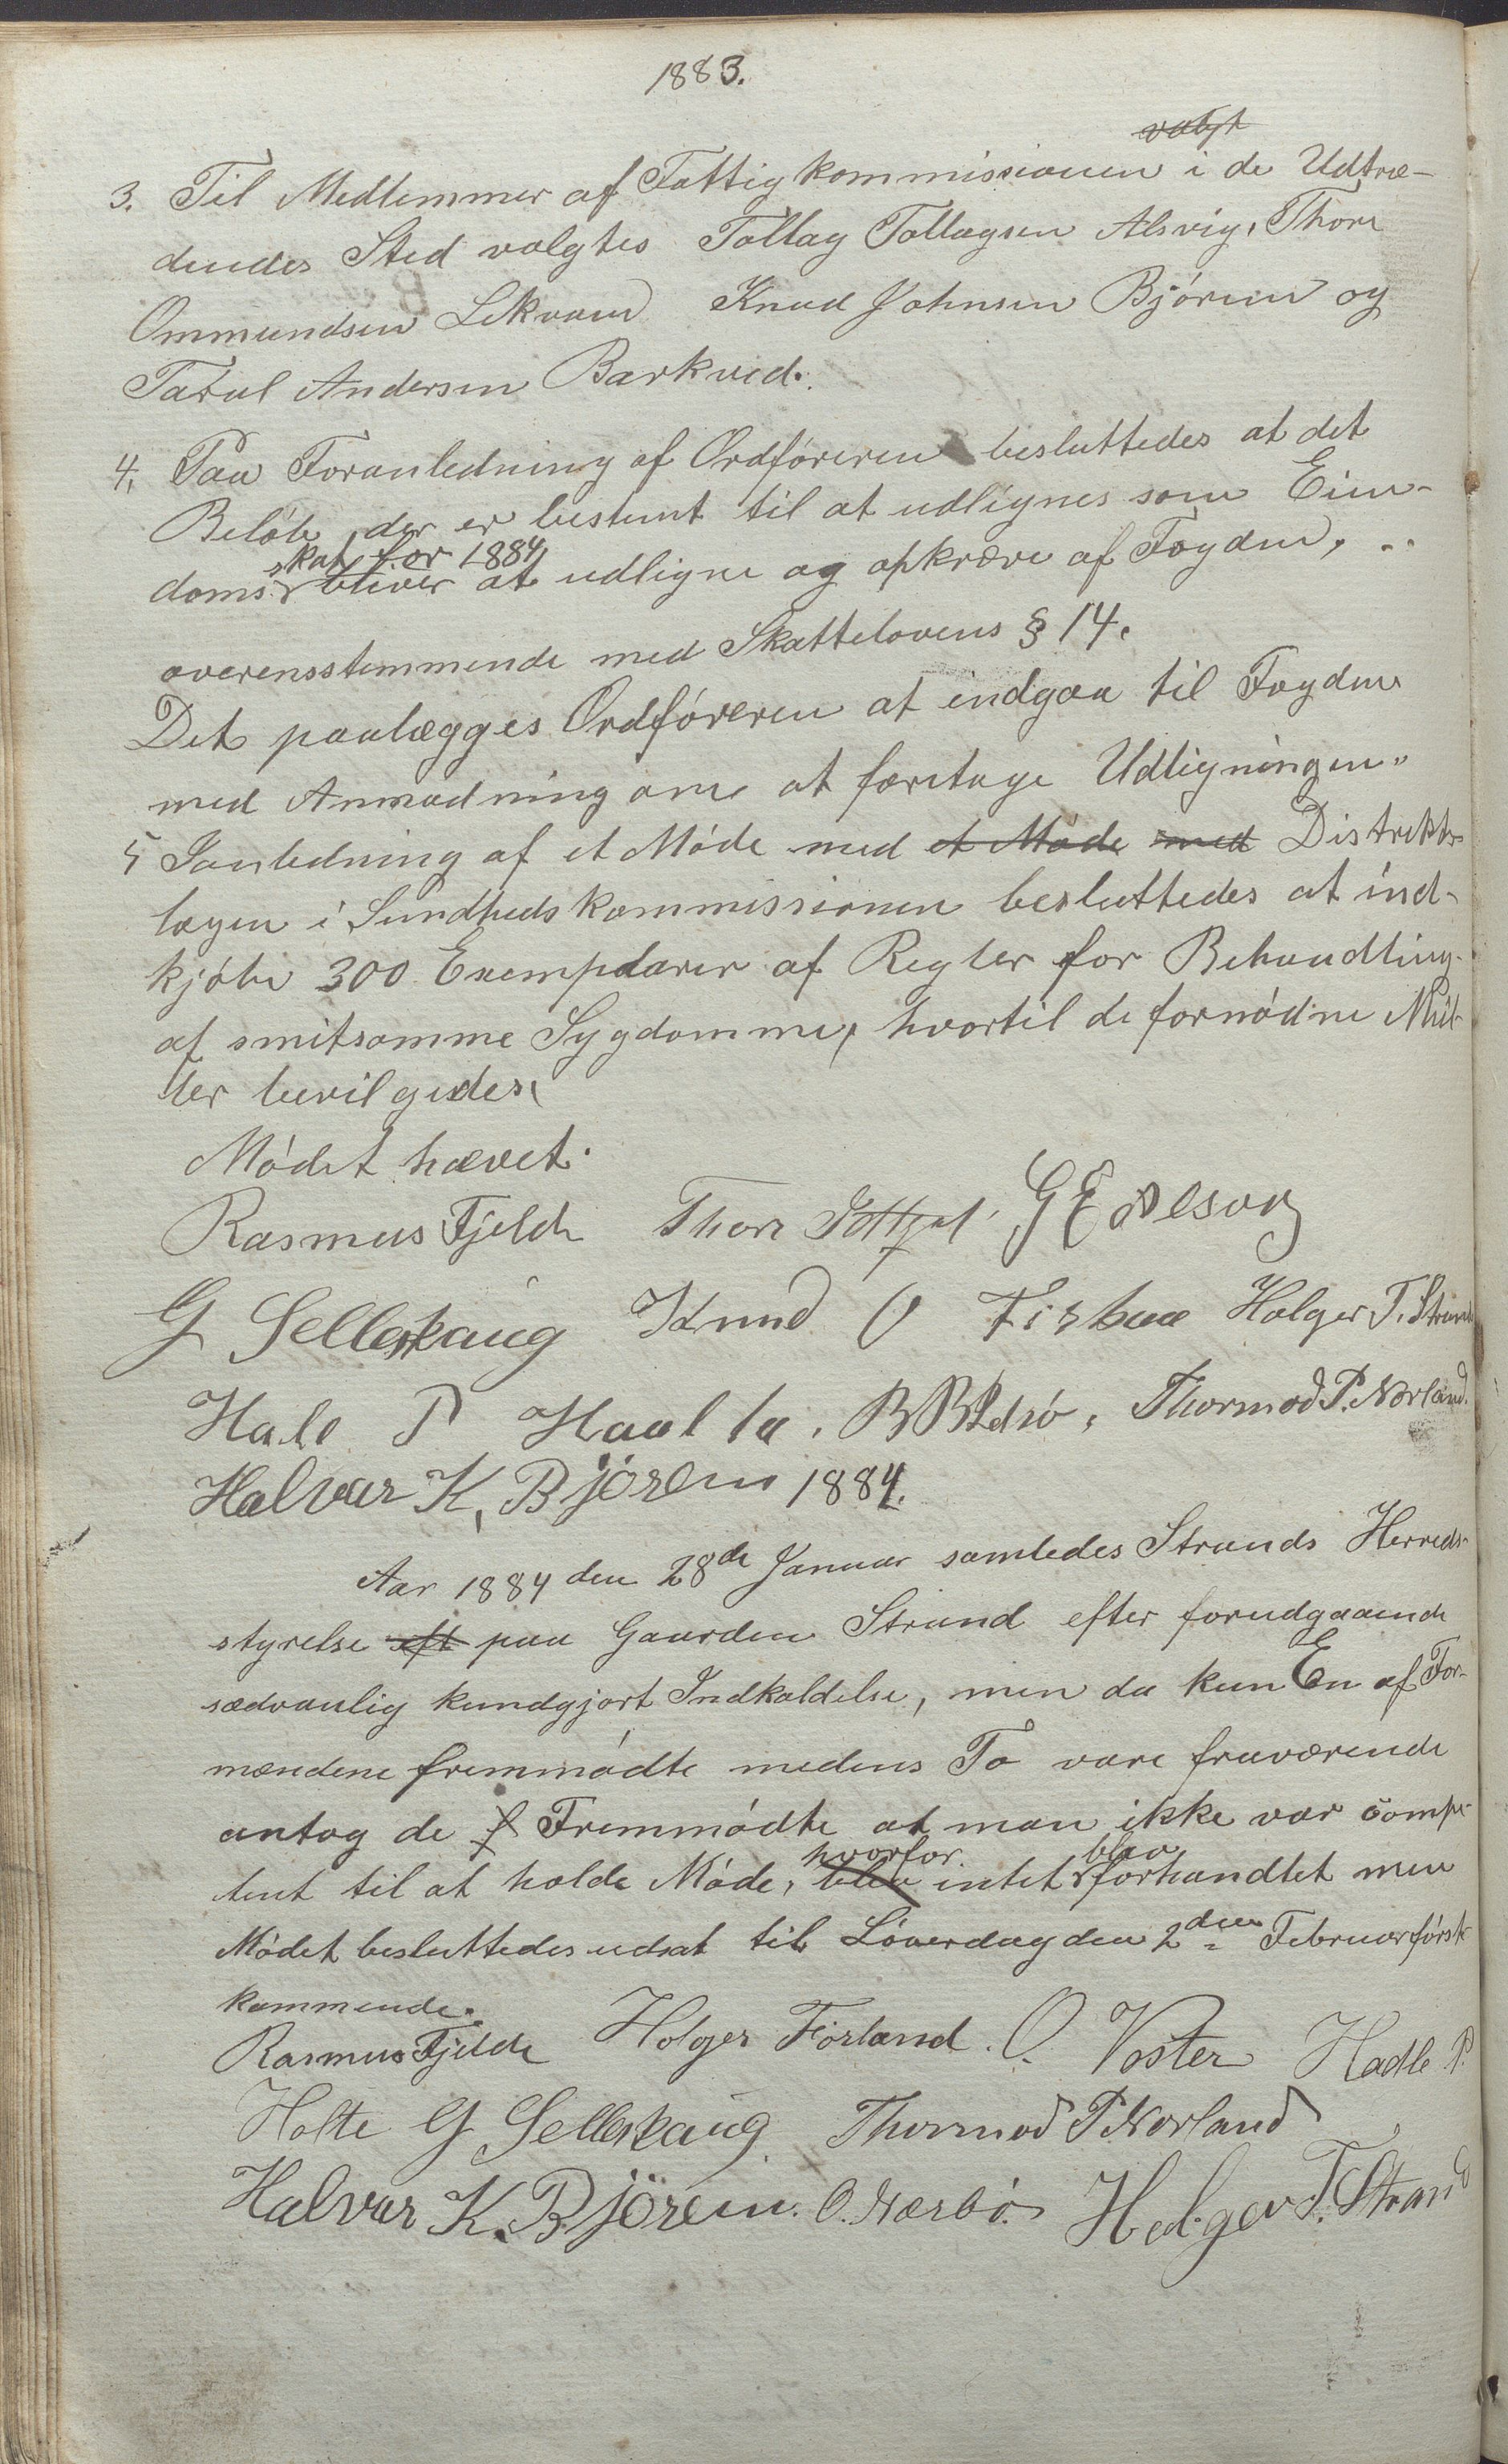 1883.
valgt
3. Til Medlemmer af Fattigkommissionen i de Udtræ-
dendes Sted valgtes Tallag Tallagsen Alsvig, Thore
Ommundsen Lekvam Knud Johnsen Bjøreim og
Tarul Andersen Barkved.
4, Paa Foranledning af Ordføreren besluttedes at det
Beløb, der er bestemt til at udlignes som Eien-
skat for 1884
doms bliver at udligne og opkræve af Fogden,
overensstemmende med Skattelovens § 14.
Det paalægges Ordføreren at indgaa til Fogden
med Anmodning om at foretage Udligningen.
5 I anledning af et Møde med et Møde med Distrikts-
lægen i Sundhedskommissionen besluttedes at ind-
kjøbe 300 Exemplarer af Regler for Behandling
af smitsomme Sygdomme, hvortil de fornødne Mid-
ler bevilgedes.
Mødet hævet.
Rasmus Fjelde Thore G E
G Selleskaug Knud O Fiskaa Holger T. Strand
Hale P Haalta. B B Idsø, Thormod P. Norland.
Halvar K, Bjørem 1884.
Aar 1884 den 28de Januar samledes Strands Herreds-
styrelse eft paa Gaarden Strand efter forudgaaende
sædvanlig kundgjort Indkaldelse, men da kun En af For-
mændene fremmødte medens To vare fraværende
antog de f Fremmødte at man ikke var compe-
hvorfor blev
tent til at holde Møde, blev intet forhandlet men
Mødet besluttedes udsat til Løverdag den 2den Februar først-
kommende.
Rasmus Fjelde Holger Førland. O. Voster Hadle P.
Holte G Selleskaug Thormod P Norland
Halvar K. Bjørem. O. Nærbø. Holger T. Strand